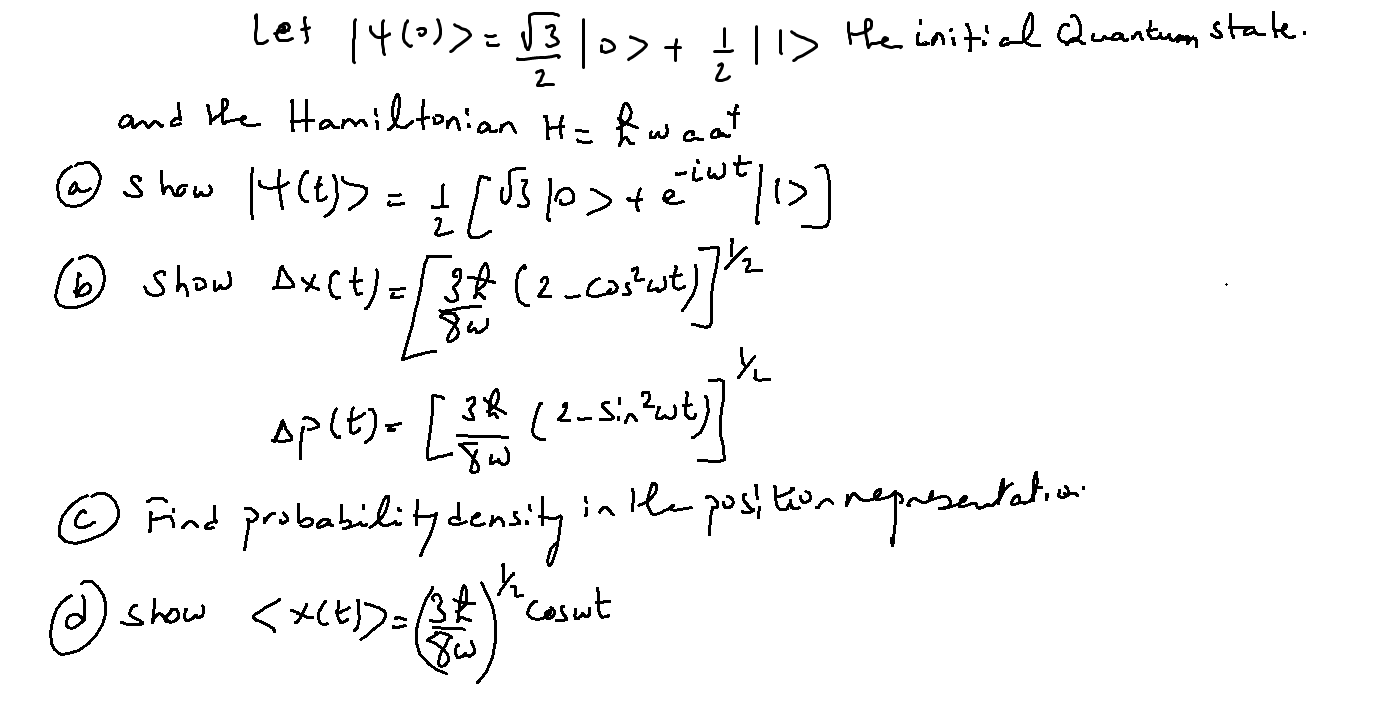 Let |ψ(0)> = √3/2 |0> + 1/2 |1> the initial Quantum state.
and the Hamiltonian H = ħ w a a†
(a) show |ψ(t)> = 1/2 [√3 |0> + e^{-iωt} |1>]
(b) show Δx(t) = [3ħ/8ω (2 - cos²ωt)]^{1/2}
Δp(t) = [3ħ/8ω (2 - sin²ωt)]^{1/2}
(c) Find probability density in the position representation.
(d) show <x(t)> = (3ħ/8ω)^{1/2} cosωt